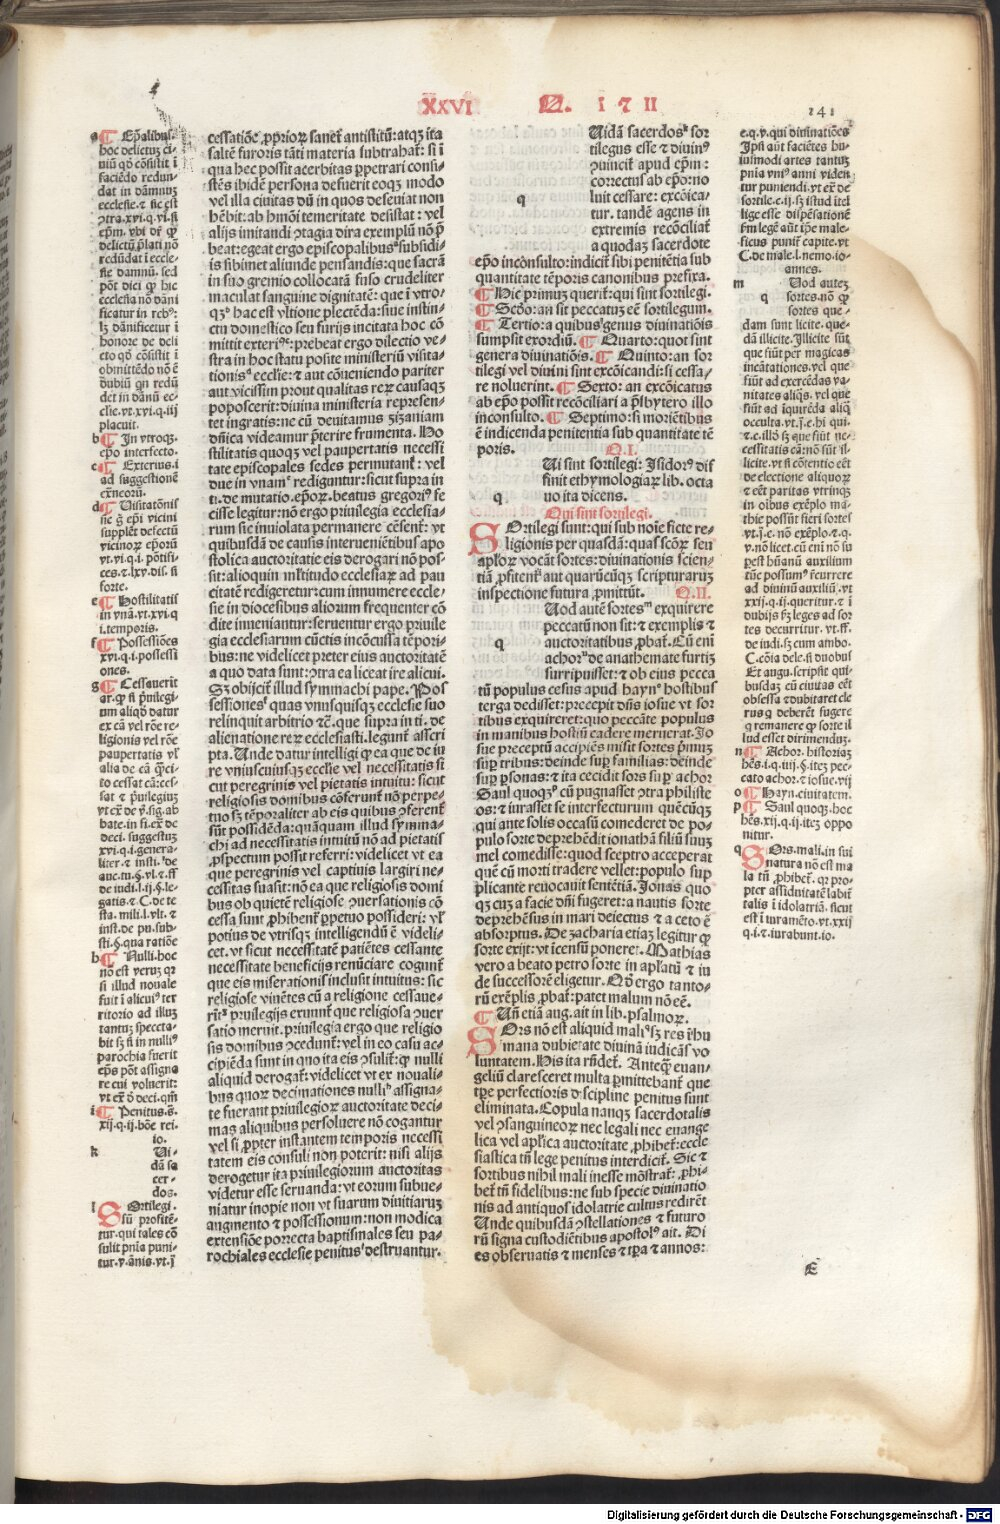 XXVI Q. I ⁊ II 141
a ¶ Ep̄alibus.
hoc delictuȝ ci-
uiū qđ cōsistit ī
faciēdo redun-
dat in dāmnuȝ
ecclesie. ⁊ sic est
ꝯtra.xvi.q.vi.si
ep̄m. vbi dr̄ ꝙ
delictū p̄lati nō
redūdat ī eccle-
sie damnū. sed
pōt dici ꝙ hic
ecclesia nō dāni
ficatur in rebꝰ:
lȝ dānificetur ī
honore de deli
cto qđ cōsistit ī
obmittēdo nō ē
dubiū qn̄ redū
det in dānū ec-
clie.vt.xvi.q.iij
placuit.
b ¶ In vtroqȝ.
ep̄o interfecto.
c ¶ Exterius.i
ad suggestionē
ex̄neorū.
d ¶ Visitatōnis
ne g̃ ep̄i vicini
supplēt defectū
vicinoꝝ ep̄orū
vt.vi.q.i.pōtifi-
ces.⁊.lxv.dis.si
forte.
e ¶ Hostilitatis
in vnā.vt.xvi.q
i.temporis.
f ¶ Possessiōes
xvi.q.i.possessi
ones.
g ¶ Cessauerit
ar.ꝙ si p̄uilegi-
um aliqđ datur
ex cā vel rōe re-
ligionis vel rōe
paupertatis vl̓
alia de cā p̄ci-
to cessat cā: ces-
sat ⁊ p̄uilegiuȝ
vt ex̄ de ṽ.sig.ab
bate.in fi.ex̄ de
deci. suggestuȝ
xvi.q.i.genera-
liter.⁊ insti.ꝰde
auc.tu.§.vl.⁊.ff
de iudi.l.ij.§.le-
gatis.⁊ C.de te
sta. mili.l.vlt. ⁊
inst.de pu.sub-
sti.§.qua ratiōe
h ¶ Nulli.hoc
nō est veruȝ qꝛ
si illud nouale
fuit ī alicuiꝰ ter
ritorio ad illuȝ
tantuȝ specta-
bit sȝ si in nulliꝰ
parochia fuerit
ep̄s pōt assigna
re cui voluerit:
vt ex̄ đ deci.qm̄
i ¶ Penitus.s̄.
xij.q.ij.bōe rei-
io.
k Ui-
dā sa
cer-
dos.
l Sortilegi.
sū profitē-
tur.qui tales cō
sulit pn̄ia puni-
tur.v.ānis.vt.j̄
cessatiōe ꝓprioꝝ sanct̄ antistitū: atqȝ ita
saltē furoris tāti materia subtrahat̄: si ī
qua hec possit acerbitas ꝑpetrari consi-
stēs ibidē persona defuerit eoqȝ modo
vel illa ciuitas dū in quos deseuiat non
hēbit: ab hmōi temeritate desistat : vel
alijs imitandi ꝯtagia dira exemplū nō p̄
beat: egeat ergo episcopalibus subsidi-
is sibimet aliunde pensandis: que sacrā
in suo gremio collocatā fuso crudeliter
maculat sanguine dignitatē: que ī vtro-
qȝᵇ hac est vltione plectēda: siue instin-
ctu domestico seu furijs incitata hoc cō
mittit exteriꝰᶜ: prebeat ergo dilectio ve-
stra in hoc statu posite ministeriū visita-
tionisᵈ ecclīe: ⁊ aut cōueniendo pariter
aut vicissim prout qualitas reꝝ causaqȝ
poposcerit: diuina ministeria represen-
tet ingratis: ne cū deuitamus zizaniam
dn̄ica videamur p̄terire frumenta. Ho
stilitatis quoqȝ vel paupertatis necessi
tate episcopales sedes permutant̄: vel
due in vnamᵉ rediguntur: sicut supra in
ti.de mutatio.ep̄oꝝ. beatus gregoriꝰ fe
cisse legitur: nō ergo priuilegia ecclesia-
rum sic inuiolata permanere cēsent̄: vt
quibusdā de causis interueniētibus apo
stolica auctoritate eis derogari nō pos-
sit: alioquin institudo ecclesiaꝝ ad pau
citatē redigeretur: cum innumere eccle-
sie in diocesibus aliorum frequenter cō
dite inueniantur: seruentur ergo priuile
gia ecclesiarum cūctis incōcussa tēpori-
bus: ne videlicet preter eius auctoritatē
a quo data sunt: ꝯtra ea liceat ire alicui.
Sȝ obijcit̄ illud symmachi pape. Pos
sessionesᶠ quas vnusquisqȝ ecclesie suo
relinquit arbitrio ⁊c̄. que supra in ti. de
alienatione reꝝ ecclesiasti.legunt̄ asscri
pta. Unde datur intelligi ꝙ ea que de iu
re vniuscuiusqȝ ecclīe vel necessitatis si
cut peregrinis vel pietatis intuitu: sicut
religiosis domibus cōferunt̄ nō perpe-
tuo sȝ tēporaliter ab eis quibus ꝯferent̄
sūt possidēda: quāquam illud symma-
chi ad necessitatis intuitū nō ad pietatis
ꝓspectum possit referri: videlicet vt ea
que peregrinis vel captiuis largiri ne-
cessitas suasit: nō ea que religiosis domi
bus ob quietē religiose ꝯuersationis cō
cessa sunt ꝓhibent̄ ꝑpetuo possideri: vl̓
potius de vtrisqȝ intelligendū ē videli-
cet.vt sicut necessitatē patiētes cessante
necessitate beneficijs renūciare cogunt̄
que eis miserationis inclusit intuitus: sic
religiose viuētes cū a religione cessaue-
rūtᵍ priuilegijs exuunt̄ que religiosa ꝯuer
satio meruit. priuilegia ergo que religio
sis domibus ꝯcedunt̄: vel in eo casu ac-
cipiēda sunt in quo ita eis ꝯsulit̄: ꝙ nulli
aliquid derogat̄: videlicet vt ex nouali-
bus quoꝝ decimationes nulliʰ assigna-
te fuerant priuilegioꝝ auctoritate deci-
mas aliquibus persoluere nō cogantur
vel si ꝓpter instantem temporis necessi
tatem eis consuli non poterit: nisi alijs
derogetur ita priuilegiorum auctoritas
videtur esse seruanda: vt eorum subue-
niatur inopie non vt suarum diuitiaruȝ
augmento ⁊ possessionum: non modica
extensiōe porrecta baptismales seu pa-
rochiales ecclesie penitusⁱ destruantur.
q Uidā sacerdosᵏ sor
tilegus esse ⁊ diuinꝰ
ꝯuincit̄ apud ep̄m :
correctus ab ep̄o: no
luit cessare: excōica-
tur. tandē agens in
extremis recōciliat̄
a quodaȝ sacerdote
ep̄o incōsulto: indicit̄ sibi penitētia sub
quantitate tēporis canonibus prefixa.
¶ Hic primuȝ querit̄: qui sint sortilegi.
¶ Sc̄do: an sit peccatuȝ eē sortilegum.
¶ Tertio: a quibus genus diuinatiōis
sumpsit exordiū. ¶ Quarto: quot sint
genera diuinatiōis. ¶ Quinto: an sor
tilegi vel diuini sint excōicandi: si cessa-
re noluerint. ¶ Sexto: an excōicatus
ab ep̄o possit recōciliari a p̄sbytero illo
inconsulto. ¶ Septimo: si moriētibus
ē indicenda penitentia sub quantitate tē
poris. Q.I.
q Ui sint sortilegi: Isidorꝰ dif
finit ethymologiaꝝ lib. octa
uo ita dicens.
Qui sint sortilegi.
Sortilegi sunt: qui sub noīe ficte re-
ligionis per quasdā: quas scōꝝ seu
apl̓oꝝ vocāt sortes: diuinationis scien-
tiā ꝓfitent̄ aut quarūcūqȝ scripturaruȝ
inspectione futura ꝓmittūt. Q.II.
q Uod autē sortesᵐ exquirere
peccatū non sit: ⁊ exemplis ⁊
auctoritatibus ꝓbat̄. Cū eni
achorⁿ de anathemate furtiȝ
surripuisset: ⁊ ob eius pecca
tū populus cesus apud haynᵒ hostibus
terga dedisset: precepit dn̄s iosue vt sor
tibus exquireret: quo peccāte populus
in manibus hostiū cadere meruerat. Io
sue preceptū accipiēs misit sortes p̄muȝ
suꝑ tribus: deinde suꝑ familias: deinde
suꝑ ꝑsonas: ⁊ ita cecidit sors suꝑ achor
Saul quoqȝᵖ cū pugnasset ꝯtra philiste
os: ⁊ iurasset se interfecturum quēcūqȝ
qui ante solis occasū comederet de po-
pulo sorte deprehēdit ionathā filiū suuȝ
mel comedisse: quod sceptro acceperat
quē cū morti tradere vellet: populo sup
plicante reuocauit sentētiā. Jonas quo
qȝ cuȝ a facie dn̄i fugeret: a nautis sorte
deprehēsus in mari deiectus ⁊ a ceto ē
absorptus. De zacharia etiaȝ legitur ꝙ
sorte exijt: vt icensū poneret. Mathias
vero a beato petro sorte in apl̓atū ⁊ iu
de successorē eligetur. Qđ ergo tanto-
rū exēplis ꝓbat̄: patet malum nō eē.
¶ Un̄ etiā aug.ait in lib. psalmoꝝ.
Sors nō est aliquid mali sȝ res ī hu
mana dubietate diuinā iudicās vo
luntatem. His ita rn̄det̄. Anteꝗ̄ euan-
geliū claresceret multa ꝑmittebant̄ que
tp̄e perfectioris discipline penitus sunt
eliminata. Copula nanqȝ sacerdotalis
vel ꝯsanguineoꝝ nec legali nec euange
lica vel apl̓ica auctoritate ꝓhibet̄: eccle
siastica tn̄ lege penitus interdicit̄. Sic ⁊
sortibus nihil mali inesse mōstrat̄: ꝓhi-
bet̄ tn̄ fidelibus: ne sub specie diuinatio
nis ad antiquos idolatrie cultus redirēt
Unde quibusdā ꝯstellationes ⁊ futuro
rū signa custodiētibus apostolꝰ ait. Di
es obseruatis ⁊ menses ⁊ tp̄a ⁊ annos:
e.q.v.qui diuinatiōes
Ipsi aūt faciētes hu-
iusmodi artes tantuȝ
pnīa vniꝰ anni viden
tur puniendi.vt ex̄ de
sortile.c.ij.sȝ istud itel
lige esse dispēsationē
s̄m legē aūt ip̄e male-
ficus punit̄ capite.vt
C.de male.l.nemo.io-
annes.
m q Uod auteȝ
sortes.nō ꝙ
sortes que-
dam sunt licite. que-
dā illicite. Illicite sūt
que fiūt per magicas
incātationes.vel que
fiūt ad exercēdas va-
nitates aliq̄s. vel que
fiūt ad iquirēda aliq̄
occulta.vt.j̄.e.hi qui.
⁊.e.illō sȝ que fiūt ne-
cessitatis cā: nō sūt il-
licite.vt si cōtentio eēt
de electione aliquoꝝ
⁊ eēt paritas vtrinqȝ
in oībus exēplo ma-
thie possūt fieri sortes
vt.j̄.e. nō exēplo.⁊.q.
v.nō licet.cū eni nō su
pest hūanū auxilium
tūc possumꝰ recurrere
ad diuinū auxiliū. vt
xxij.q.ij.queritur. ⁊ i
dubijs sȝ leges ad sor
tes decurritur. vt.ff.
de iudi. sȝ cum ambo.
C.cōia dele.si duobus
Et augu.scripsit qui-
busdaȝ cū ciuitas eēt
obsessa ⁊ dubitaret cle
rus q deberēt fugere
q remanere ꝙ sorte il
lud esset dirimenduȝ.
n ¶ Achor. historiaȝ
hēs.i.q.iiij.§.iteȝ pec-
cato achor.⁊ iosue.vij
o ¶ Hayn.ciuitatem.
p ¶ Saul quoqȝ.hoc
hēs.xij.q.ij.iteȝ oppo
nitur.
q Sors.mali.in sui
natura nō est ma
la tn̄ ꝓhibet̄. qꝛ pro-
pter assiduitatē labūt̄
talis ī idolatriā. sicut
est ī iuramēto.vt.xxij
q.i.⁊.iurabunt.io.
E
Digitalisierung gefördert durch die Deutsche Forschungsgemeinschaft - DFG